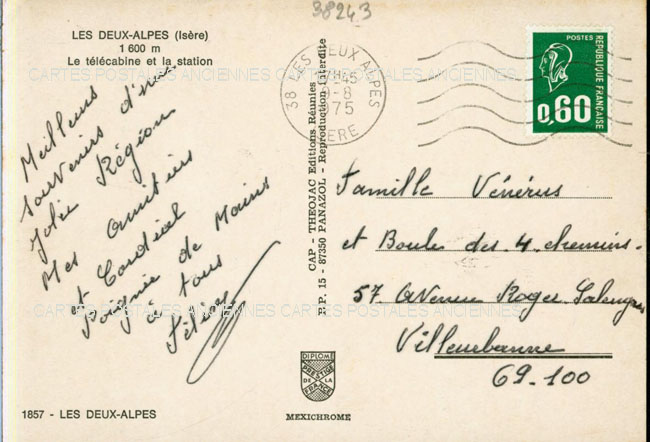 38243
LES DEUX-ALPES (Isère)
1 600 m
Le télécabine et la station
CARTES POSTALES ANCIENNES CARTES POSTALES ANCIENNES
Meilleurs
souvenirs d'une
Jolie Région
Mes Amitiés
et Cordial
Poignée de Mains
à tous
CAP - THEOJAC Editions Réunies
B.P. 15 - 87350 PANAZOL - Reproduction interdite
38 LES DEUX ALPES
-8
1975
ISERE
POSTES
REPUBLIQUE FRANÇAISE
0,60
Famille Vénérus
et Boule des 4 chemins.
57 Avenue Roger Salengro
Villeurbanne
69-100
CARTES POSTALES ANCIENNES CARTES POSTALES ANCIENNES
DIPLOME
PRESTIGE
DE LA
FRANCE
MEXICHROME
1857 - LES DEUX-ALPES